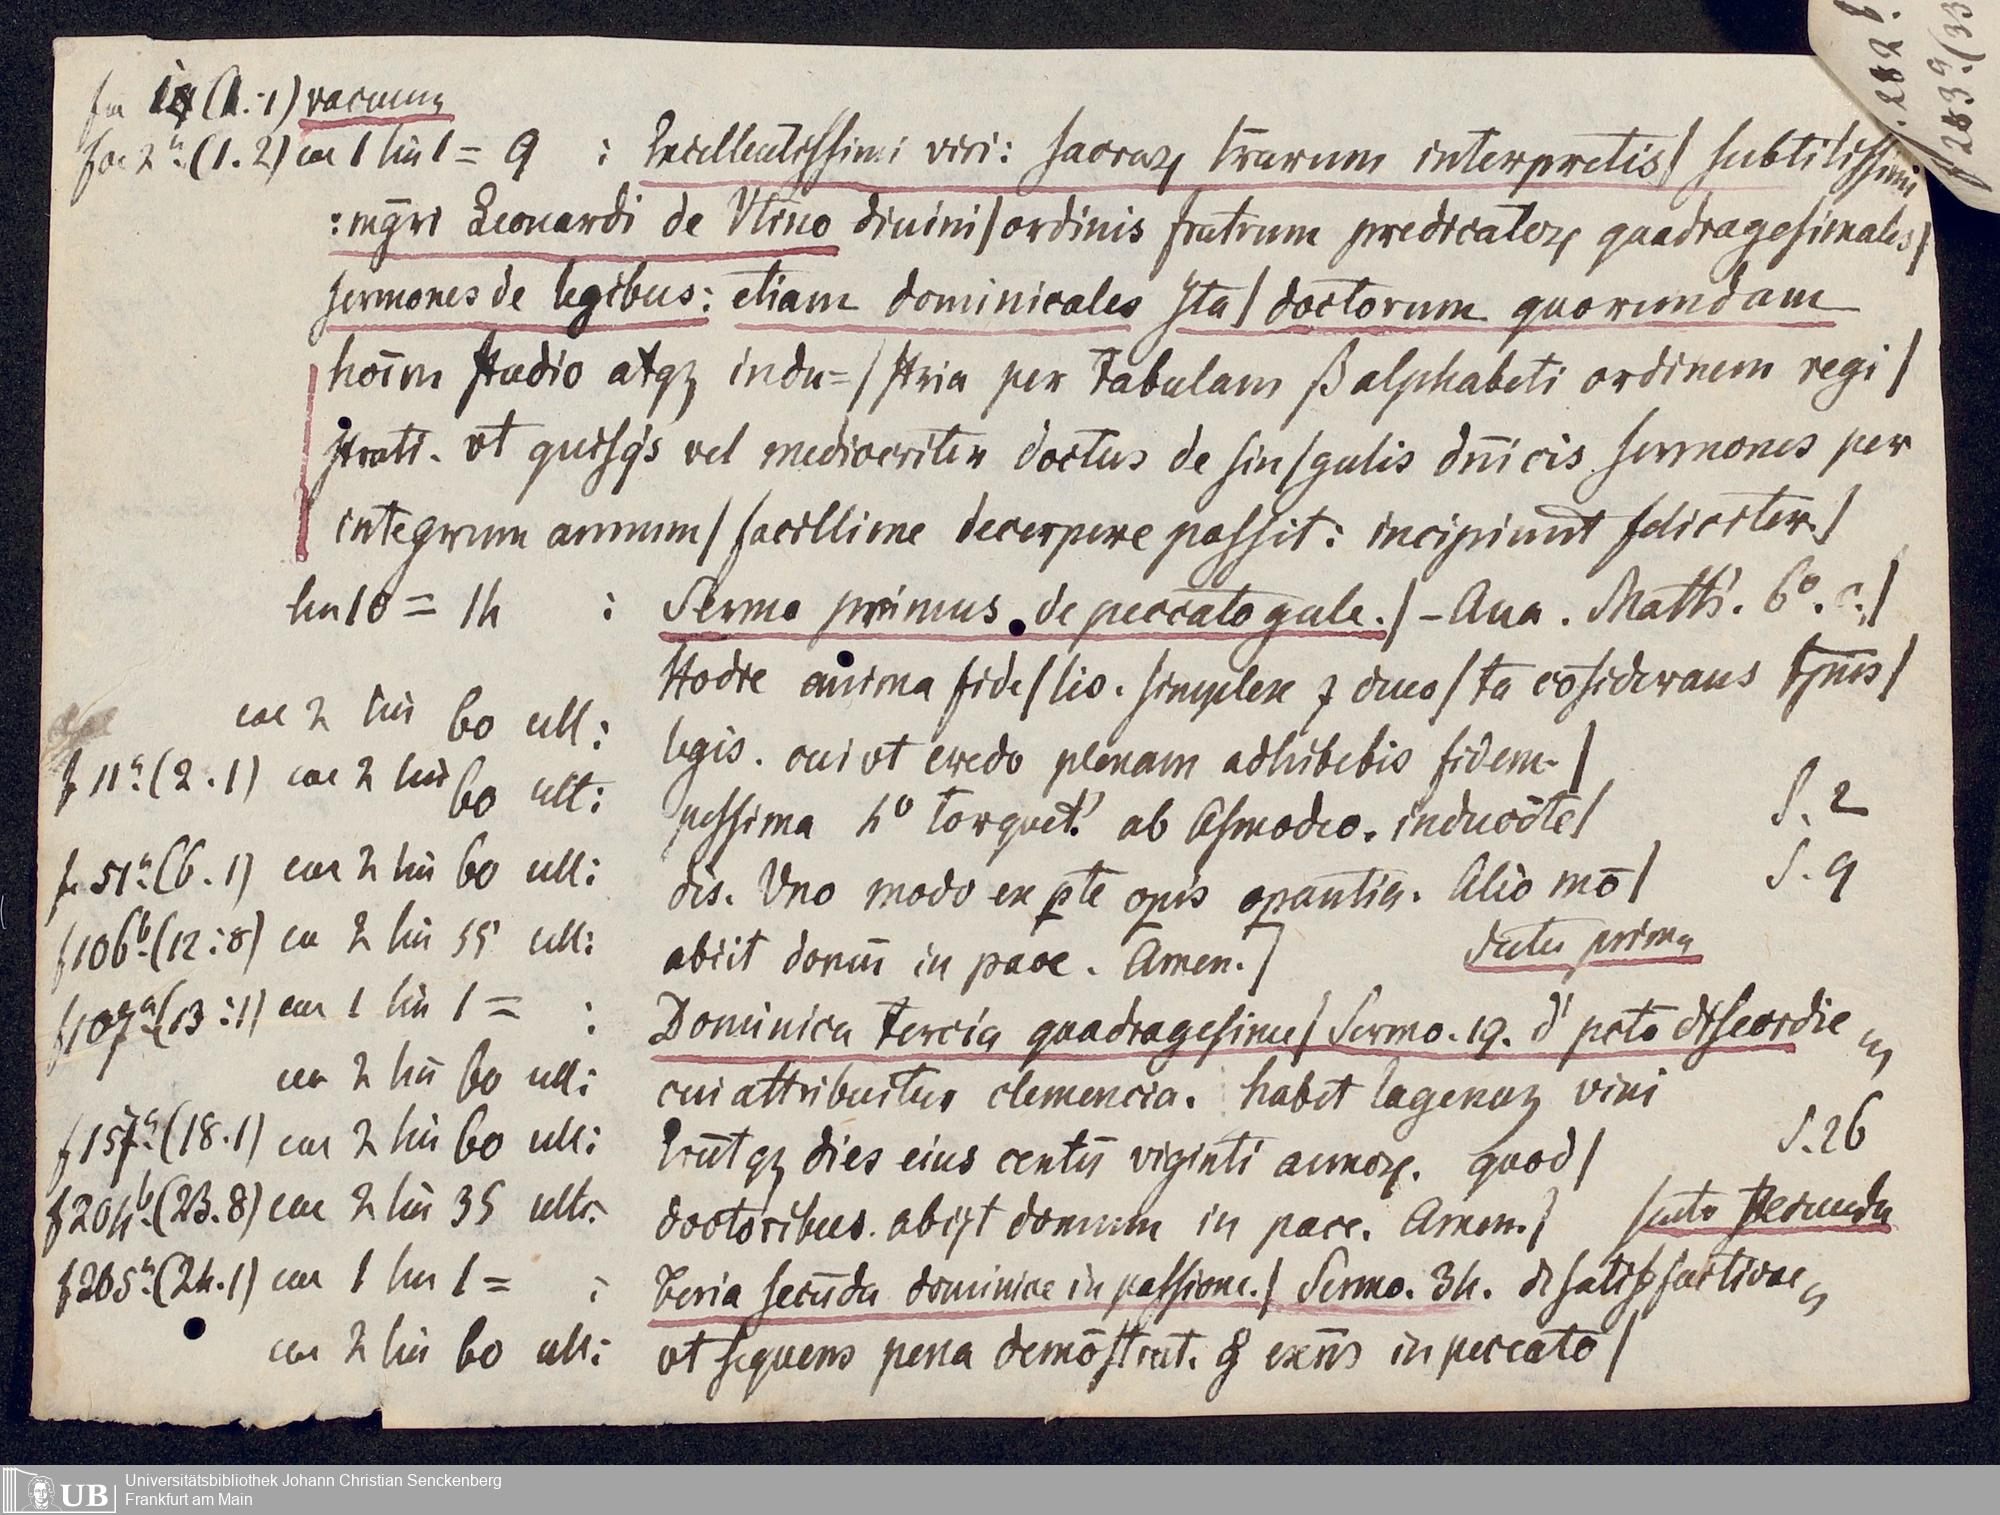 fa 1a (1.1) vacuum
fae 2a (1.2) cae 1 lin 1 = 9 : Excellentissimi viri: sacraꝝ lr̄arum interpretis/ subtilissimi
: mg̅ri Leonardi de Vtino diuini/ ordinis fratrum predicatoꝝ quadragesimales/
sermones de legibus: etiam dominicales Ita/ doctorum quorundam
hoīm studio atqꝫ indu=/ stria per tabulam ß alphabeti ordinem regi/
strati. vt quisqs vel mediocriter doctus de sin/gulis dn̄icis sermones per
integrum annum/ facillime decerpere possit: incipiunt feliciter/
lin 10 = 14 : Sermo primus de peccato gule./ - Aua. Matth. 6o. c./
Hodie anima fide/lis. simplex ꝫ deuo/ta cōsiderans
cae 2 lin 60 ult: legis. cui vt credo plenam adhibebis fidem./
f 11a (2.1) cae 2 lin 60 ult: pessima ho torquet' ab Asmodeo. inducōte/ S. 2
f 51a (6.1) cae 2 lin 60 ult: dis. Vno modo ex ꝑte opis opantis. Alio mō/ S. 9
f 106b (12.8) ca 2 lin 55 ult: abiit domū in pace. Amen./ Suter prima
f 107a (13.1) cae 1 lin 1 = : Dominica tercia quadragesime/ Sermo. 19. d' pctō discordie
cui attribuitur clemencia. habet lagenaꝫ vini
cae 2 lin 60 ult: Erūtqꝫ dies eius centū viginti annoꝝ. quod/ S. 26
f 157a (18.1) cae 2 lin 60 ult:
f 204b (23.8) cae 2 lin 35 ult: doctoribus. abijt domum in pace. Amen./ secunda
f 205a (24.1) cae 1 lin 1 = : Feria secūda dominice in passione./ Sermo. 34. d
cae 2 lin 60 ult: vt sequens pena demōstrat. in peccato/
f 282 b.
f 283a (33
UB Universitätsbibliothek Johann Christian Senckenberg
Frankfurt am Main